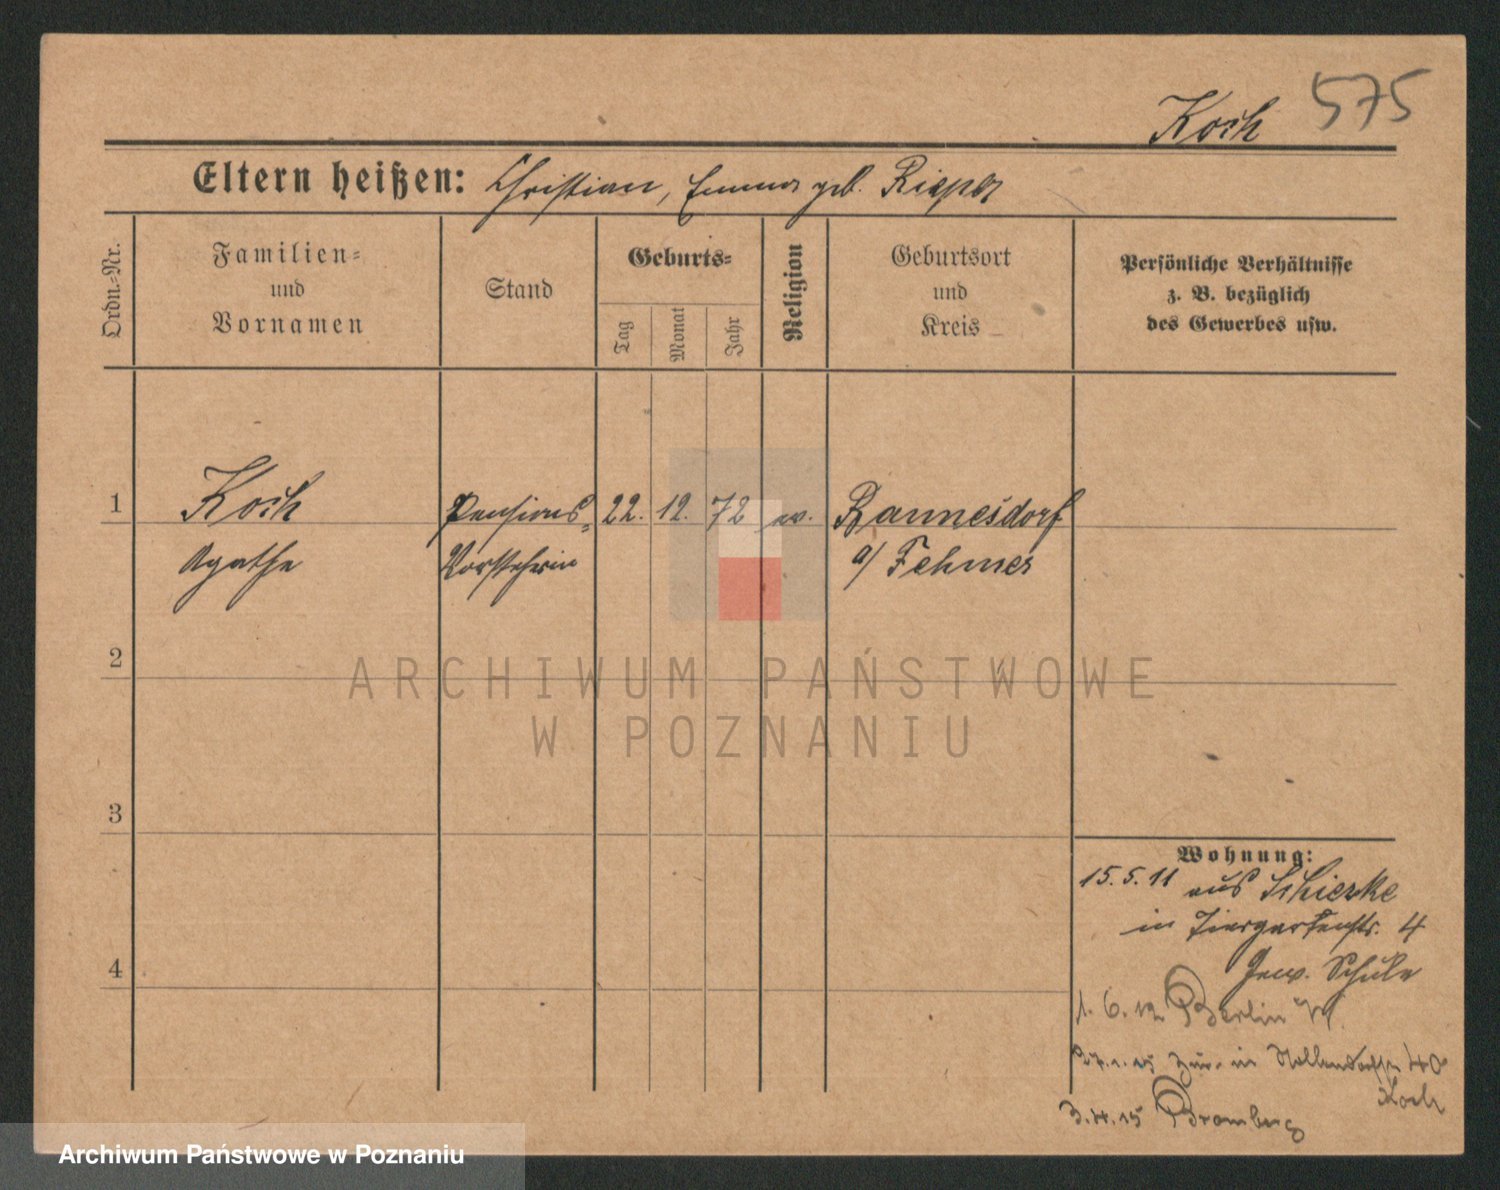 Koch 575
Eltern heißen: Christian, Emma geb. Rieper
Ordn.=Nr.
Familien=
und
Vornamen
Stand
Geburts=
Tag
Monat
Jahr
Religion
Geburtsort
und
Kreis
Persönliche Verhältnisse
z. B. bezüglich
des Gewerbes usw.
1
Koch
Pensions=
22. 12. 72 ev.
Bannesdorf
Agathe
Vorsteherin
a/ Fehmer
2
ARCHIWUM PAŃSTWOWE
W POZNANIU
3
Wohnung:
15.5.11 aus Schierke
in Tiergartenstr. 4
4
Gew. Schule
1. 6. 12 Berlin W.
27.1.15 zur. in Hollendorffstr 40
Koch
3.4.15 Bromberg
Archiwum Państwowe w Poznaniu